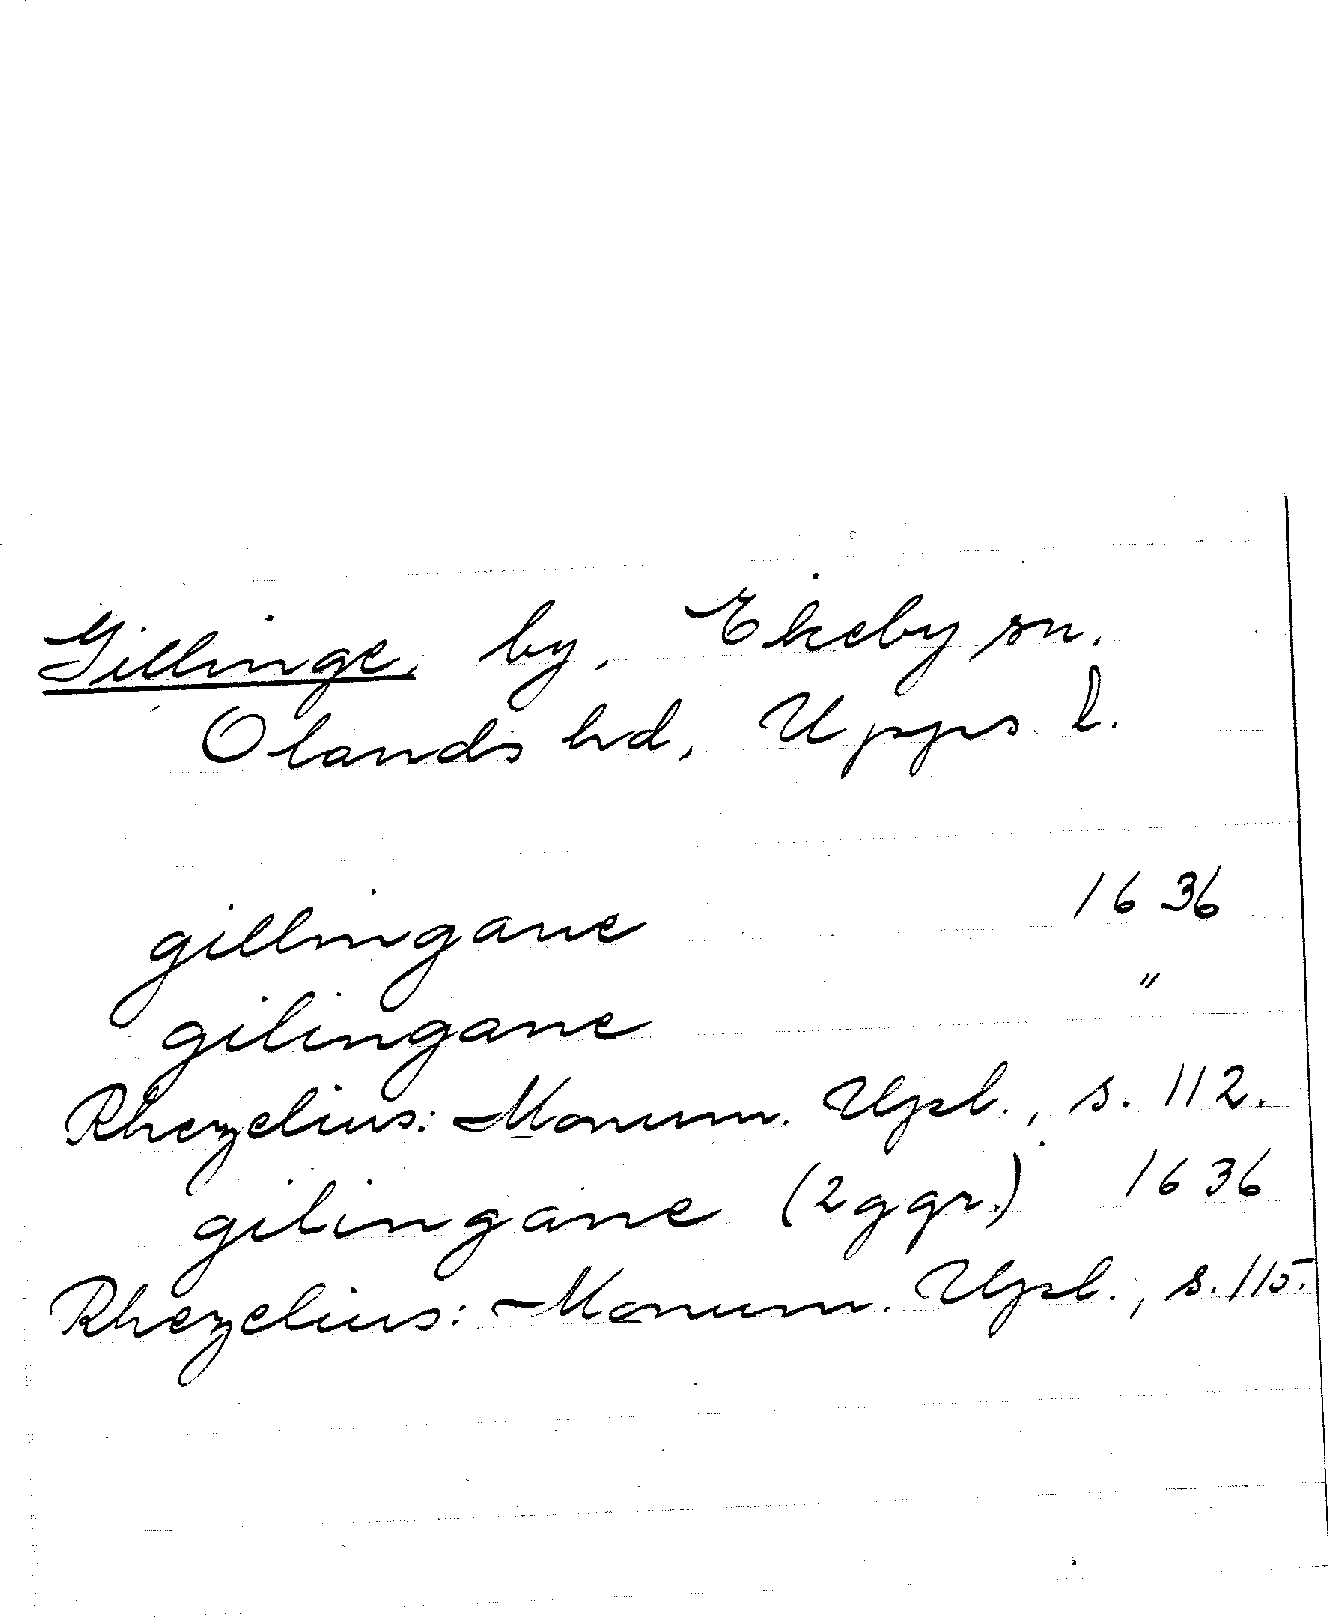 Gillinge, by, Ekeby sn.
Olands hd, Upps l.
gillingane 1636
gilingane "
Rhezelius: Monum. Upl., s. 112.
gilingane (2 ggr.) 1636
Rhezelius: Monum. Upl., s. 115.